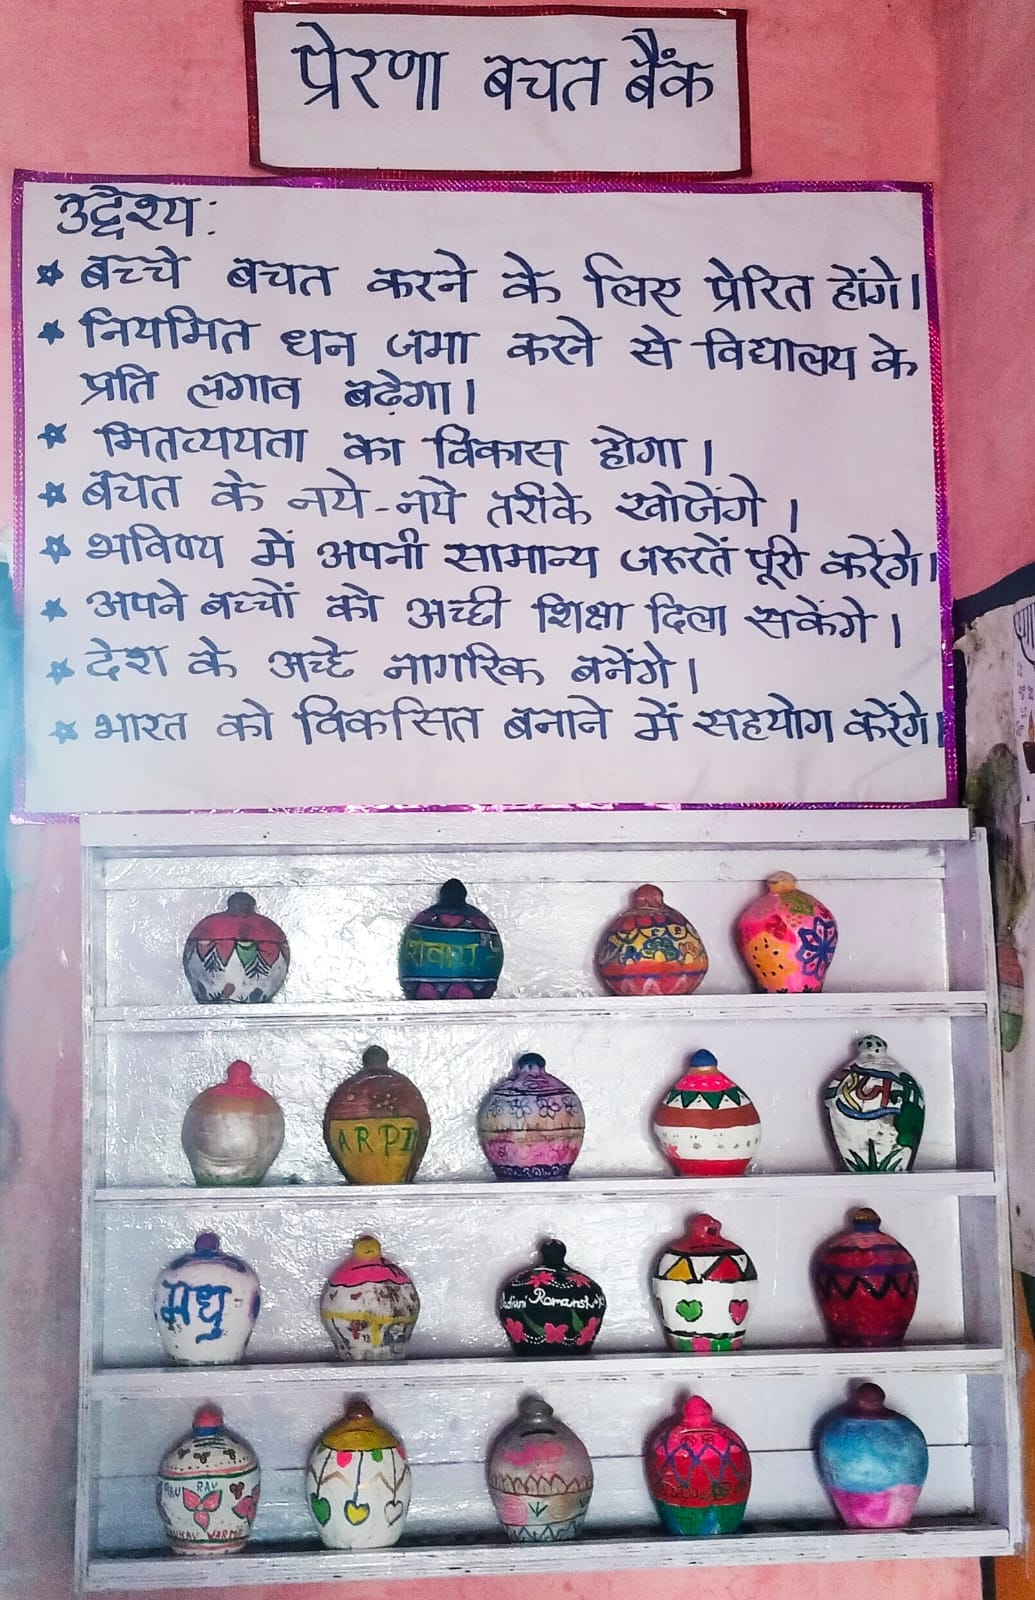 प्रेरणा बचत बैंक
उद्देश्य:
* बच्चे बचत करने के लिए प्रेरित होंगे।
* नियमित धन जमा करने से विद्यालय के
प्रति लगाव बढ़ेगा।
* मितव्ययता का विकास होगा।
* बचत के नये-नये तरीके खोजेंगे।
* भविष्य में अपनी सामान्य जरूरतें पूरी करेंगे।
* अपने बच्चों को अच्छी शिक्षा दिला सकेंगे।
* देश के अच्छे नागरिक बनेंगे।
* भारत को विकसित बनाने में सहयोग करेंगे।
ARPI
मधु